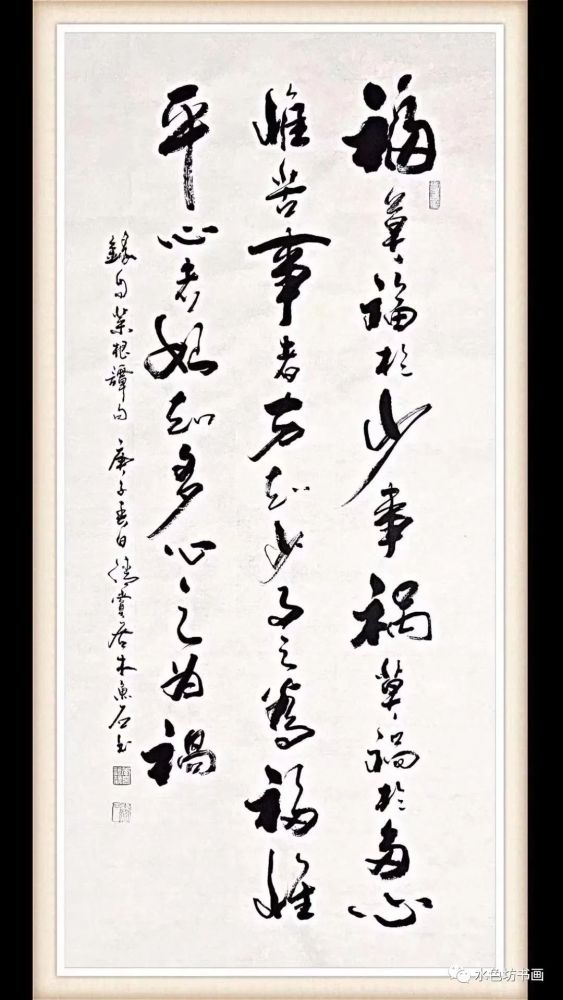 福莫福於少事禍莫禍於多心
惟苦事者方知少事之為福惟
平心者始知多心之為禍
錄自菜根譚句 庚子春日賞居木魚石書
水色坊书画